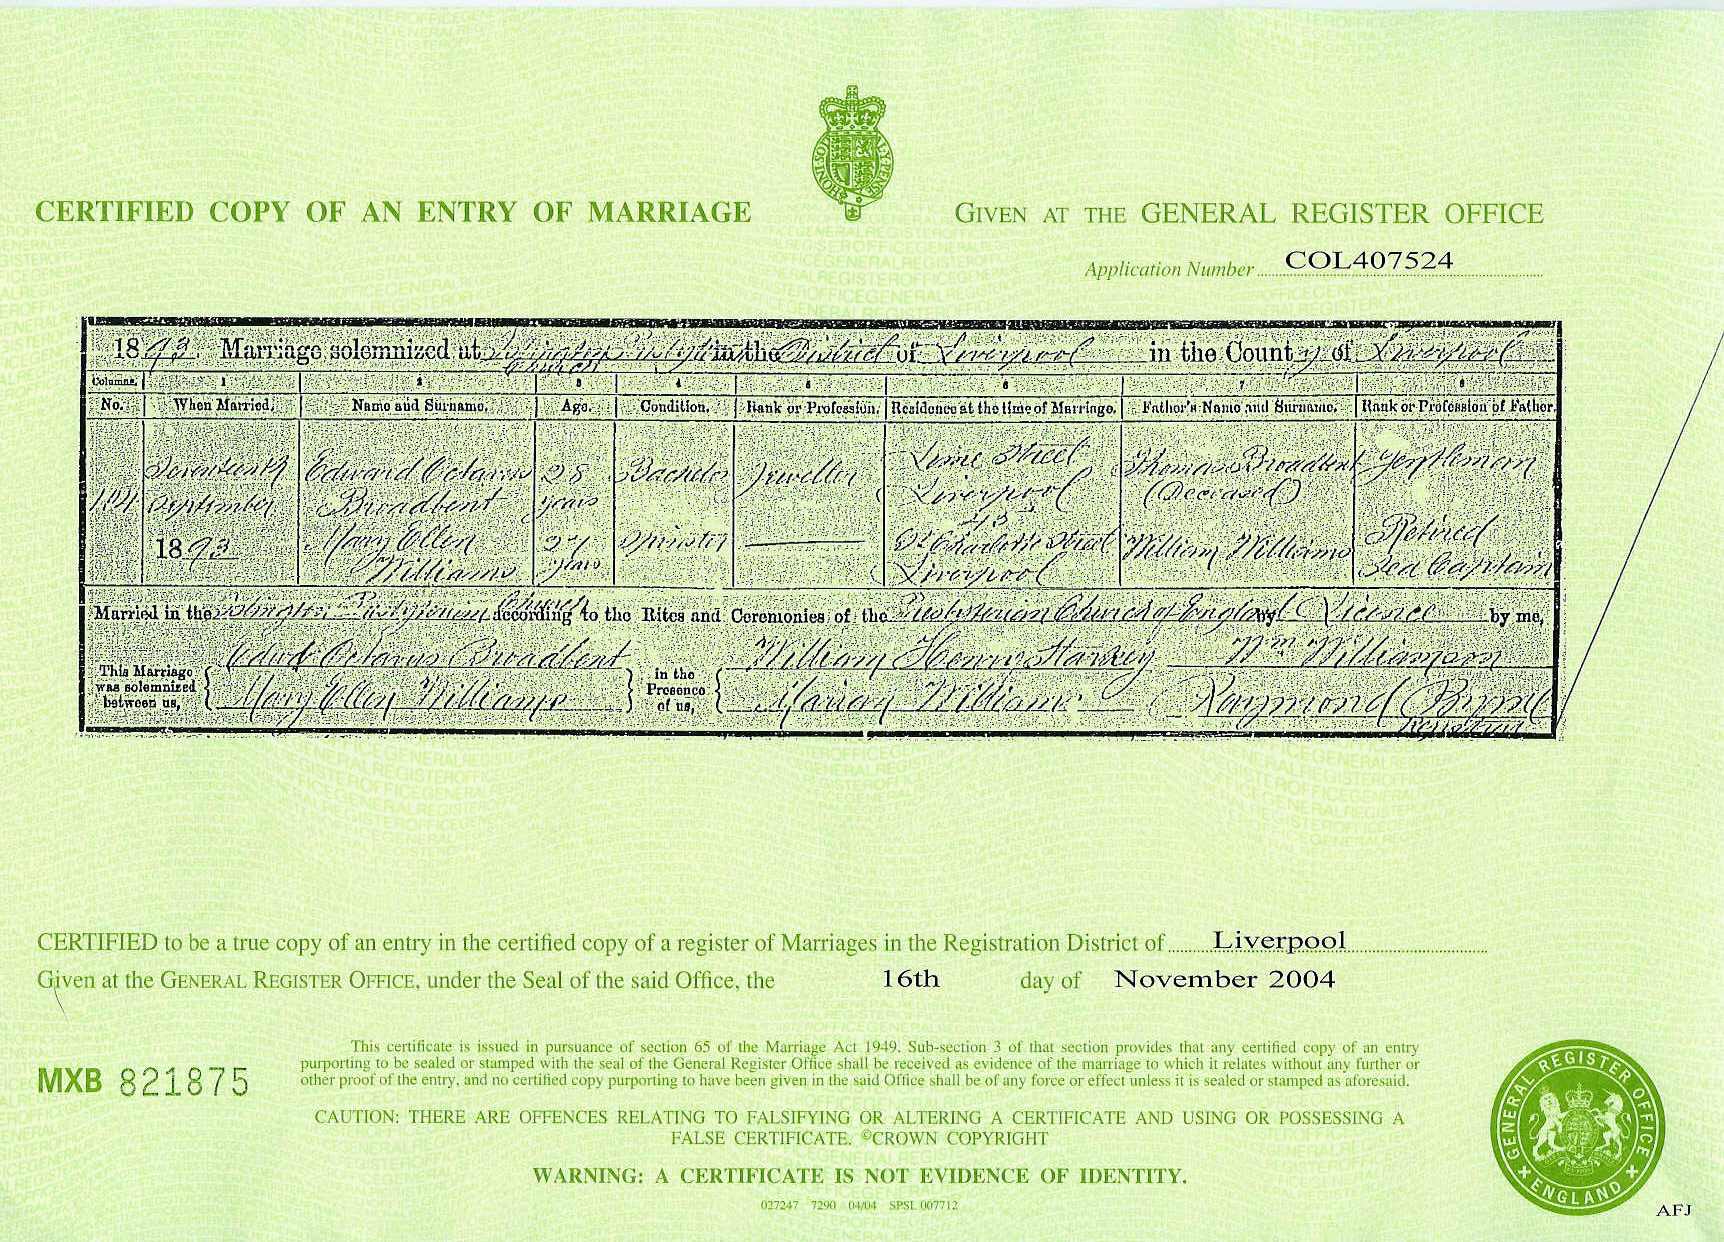 CERTIFIED COPY OF AN ENTRY OF MARRIAGE
GIVEN AT THE GENERAL REGISTER OFFICE
Application Number COL407524
1893. Marriage solemnized at Islington Presbyterian Church in the District of Liverpool in the County of Liverpool
Columns. 1 2 3 4 5 6 7 8
No. When Married. Name and Surname. Age. Condition. Rank or Profession. Residence at the time of Marriage. Father's Name and Surname. Rank or Profession of Father.
Seventeenth September 1893
Edward Octavus Broadbent 28 years Bachelor Jeweller Lime Street Liverpool Thomas Broadbent (Deceased) Gentleman
Mary Ellen Williams 27 years Spinster 45 Gt Charlotte Street Liverpool William Williams Retired Sea Captain
Married in the Islington Presbyterian Church according to the Rites and Ceremonies of the Presbyterian Church of England by Licence by me,
This Marriage was solemnized between us, Edwd Octavus Broadbent Mary Ellen Williams
in the Presence of us, William Henry Williams
Wm Williamson
Raymond Registrar
CERTIFIED to be a true copy of an entry in the certified copy of a register of Marriages in the Registration District of Liverpool
Given at the GENERAL REGISTER OFFICE, under the Seal of the said Office, the 16th day of November 2004
This certificate is issued in pursuance of section 65 of the Marriage Act 1949. Sub-section 3 of that section provides that any certified copy of an entry
purporting to be sealed or stamped with the seal of the General Register Office shall be received as evidence of the marriage to which it relates without any further or
other proof of the entry, and no certified copy purporting to have been given in the said Office shall be of any force or effect unless it is sealed or stamped as aforesaid.
MXB 821875
CAUTION: THERE ARE OFFENCES RELATING TO FALSIFYING OR ALTERING A CERTIFICATE AND USING OR POSSESSING A
FALSE CERTIFICATE. ©CROWN COPYRIGHT
WARNING: A CERTIFICATE IS NOT EVIDENCE OF IDENTITY.
027247 7290 04/04 SPSL 007712
GENERAL REGISTER OFFICE
ENGLAND
AFJ